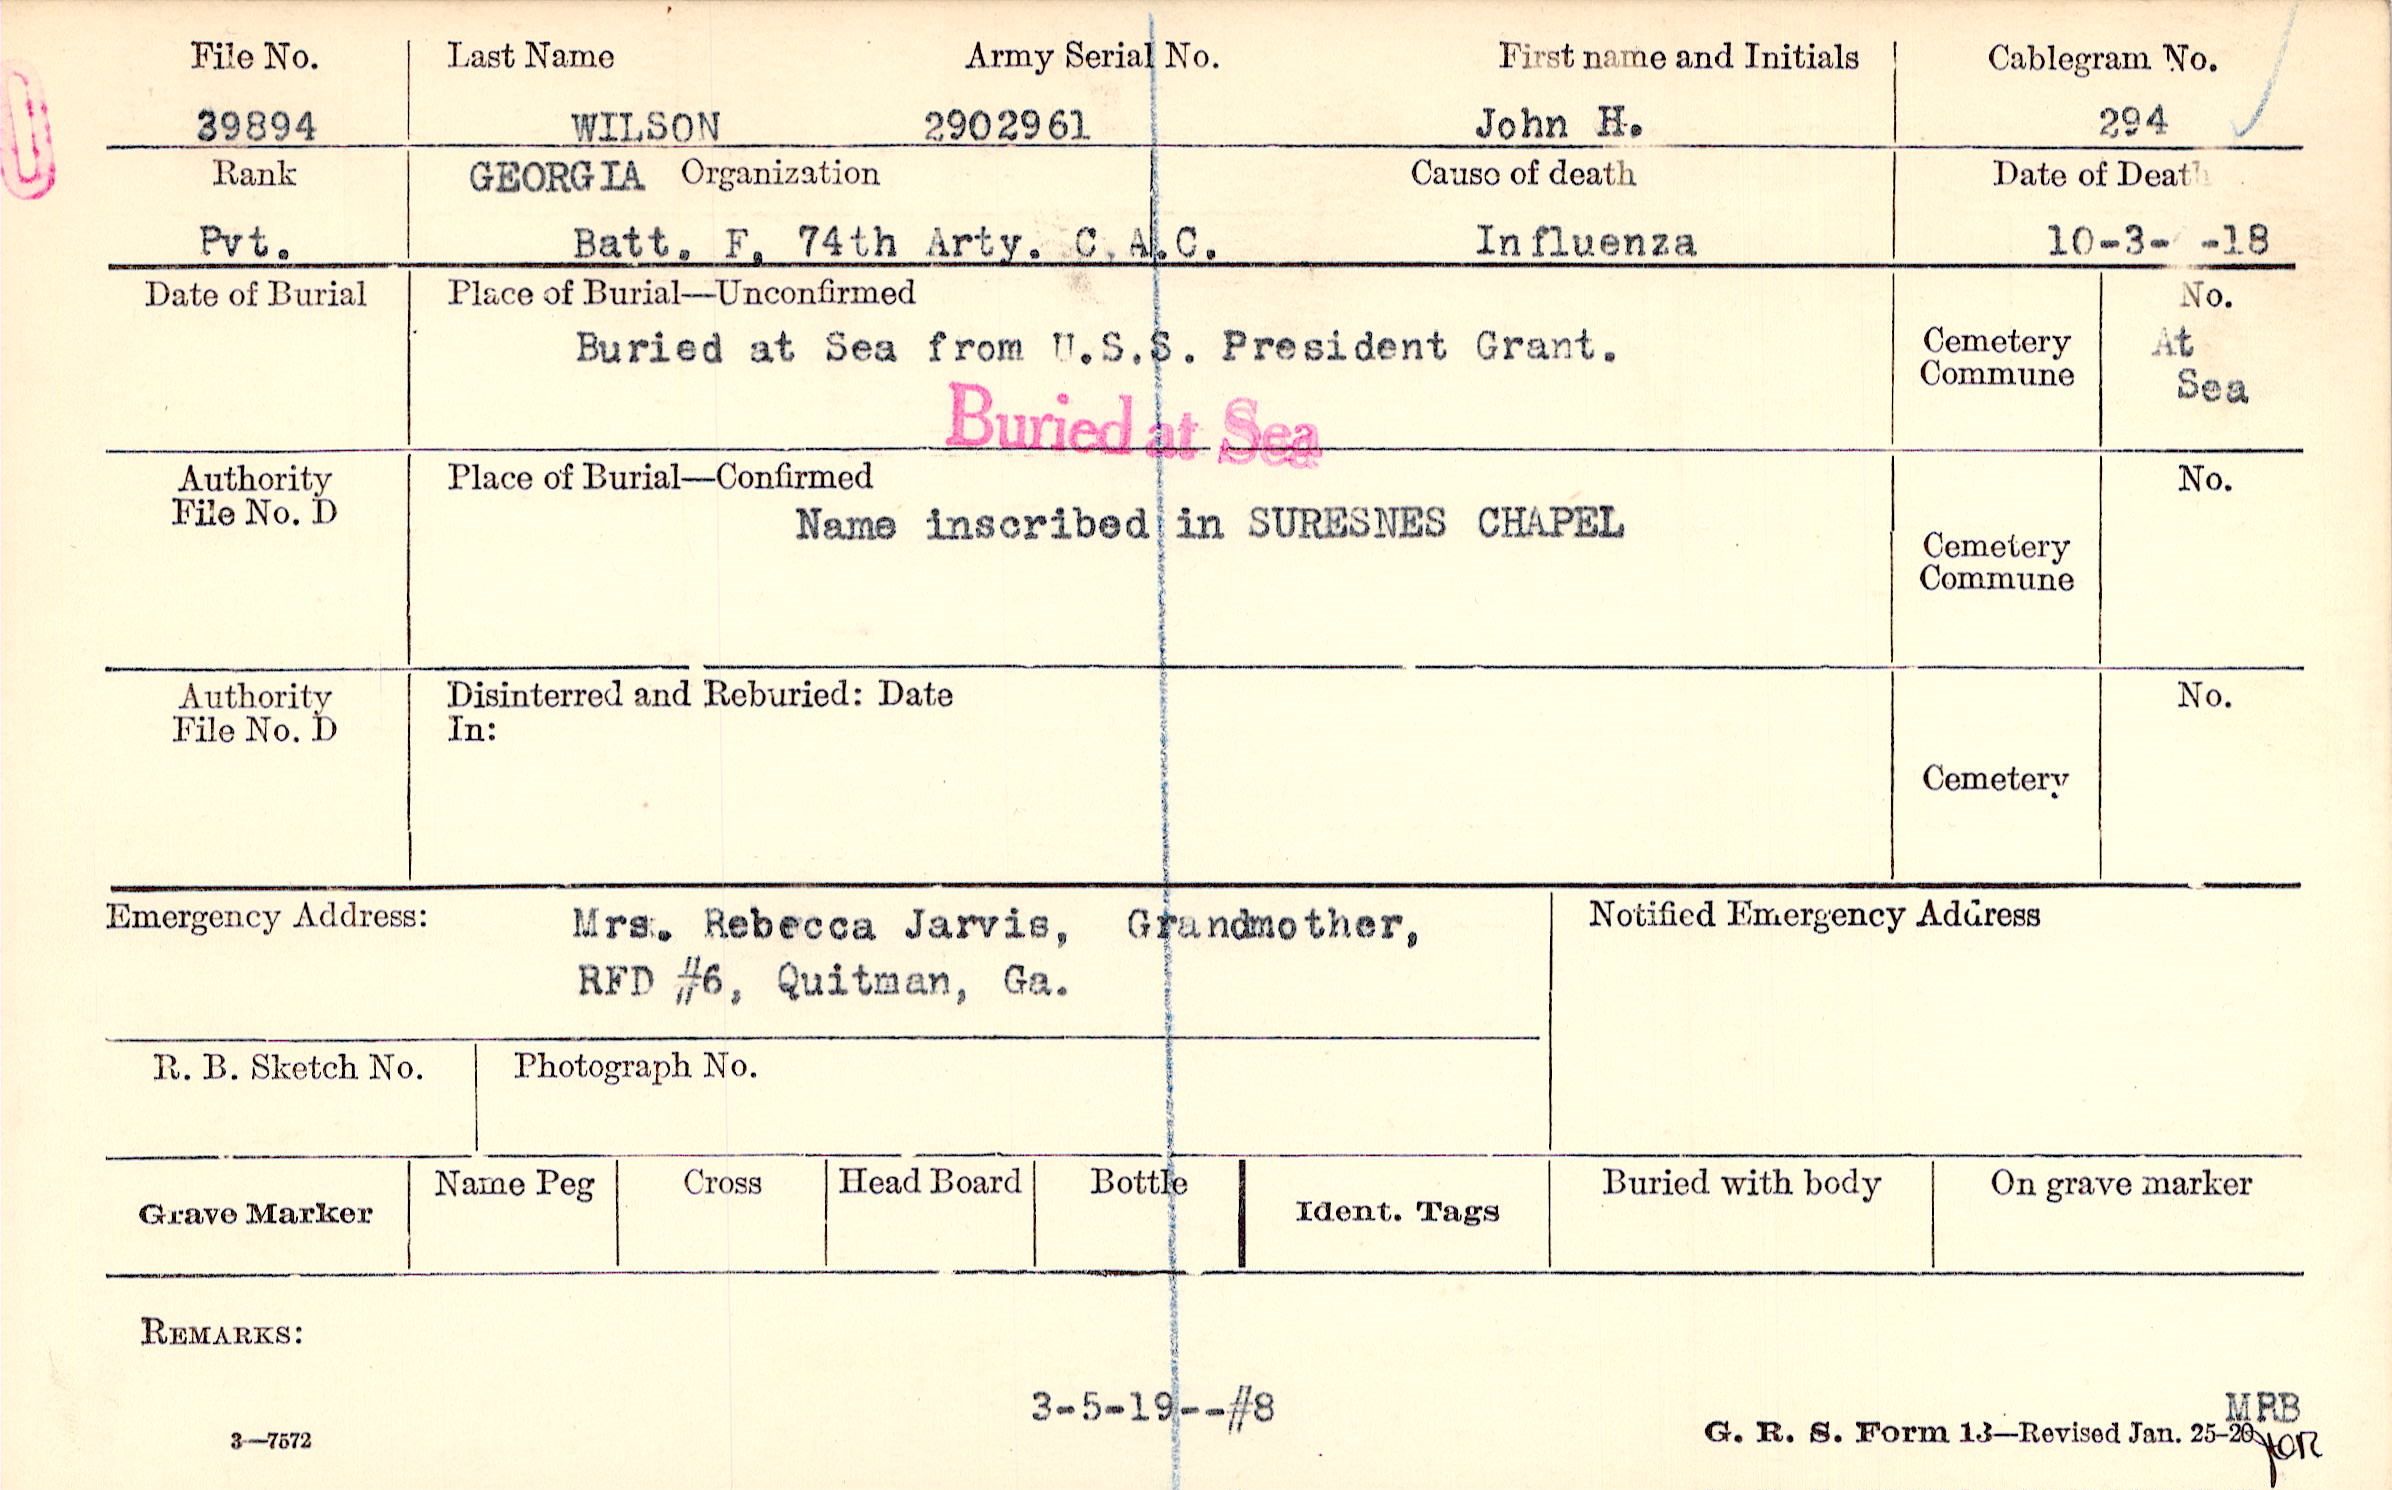 File No. Last Name Army Serial No. First name and Initials Cablegram No.
39894 WILSON 2902961 John H. 294
Rank GEORGIA Organization Cause of death Date of Death
Pvt. Batt. F, 74th Arty. C.A.C. Influenza 10-3- -18
Date of Burial Place of Burial—Unconfirmed No.
Buried at Sea from U.S.S. President Grant. Cemetery At
Commune Sea
Buried at Sea
Authority Place of Burial—Confirmed No.
File No. D
Name inscribed in SURESNES CHAPEL Cemetery
Commune
Authority Disinterred and Reburied: Date No.
File No. D In:
Cemetery
Emergency Address: Mrs. Rebecca Jarvis, Grandmother, Notified Emergency Address
RFD #6, Quitman, Ga.
R. B. Sketch No. Photograph No.
Grave Marker Name Peg Cross Head Board Bottle Ident. Tags Buried with body On grave marker
REMARKS:
3-5-19--#8
MRB
3—7572 G. R. S. Form 13—Revised Jan. 25-20